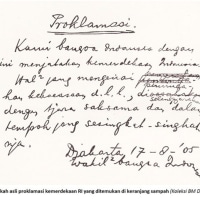 Proklamasi.
Kami bangsa Indonesia dengan
ini menjatakan kemerdekaan Indonesia.
Hal² jang mengenai
han kekoeasaan d.l.l., diselenggarakan
dengan tjara saksama dan dalam
tempoh jang sesingkat-singkat
nja.
Djakarta 17-8-'05
Wakil² bangsa Indon
kah asli proklamasi kemerdekaan RI yang ditemukan di keranjang sampah (Koleksi BM D